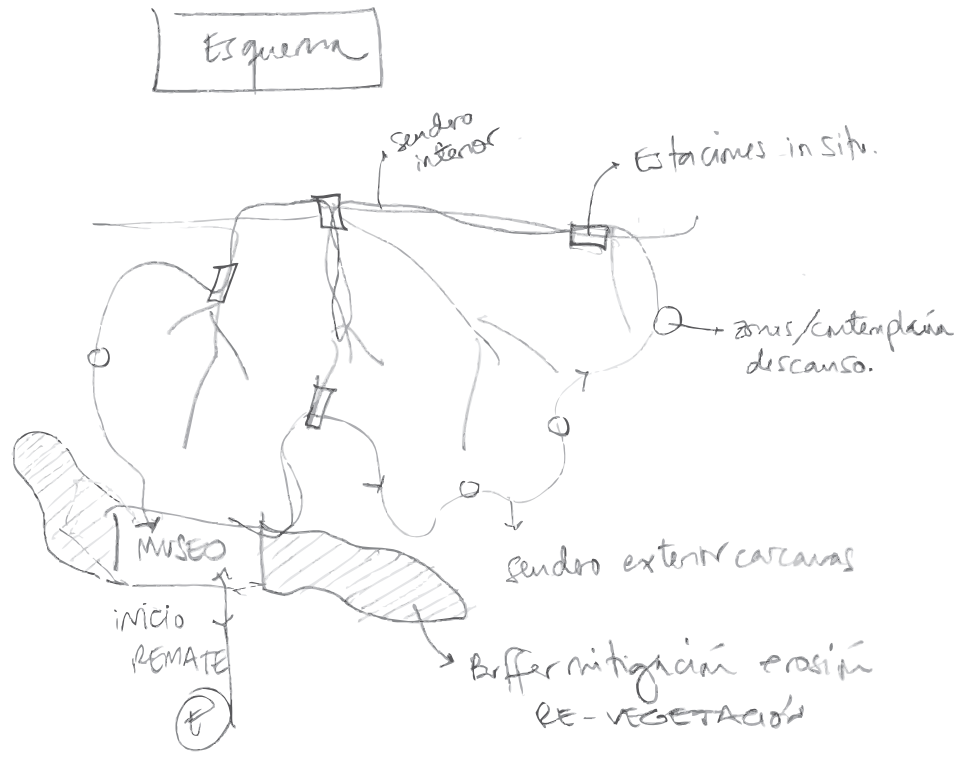 Esquema
sendero
interior
Estaciones in situ.
zonas/contemplación
descanso.
MUSEO
sendero exterior carcavas
INICIO
REMATE
Buffer mitigación erosión
RE-VEGETACIÓN
E